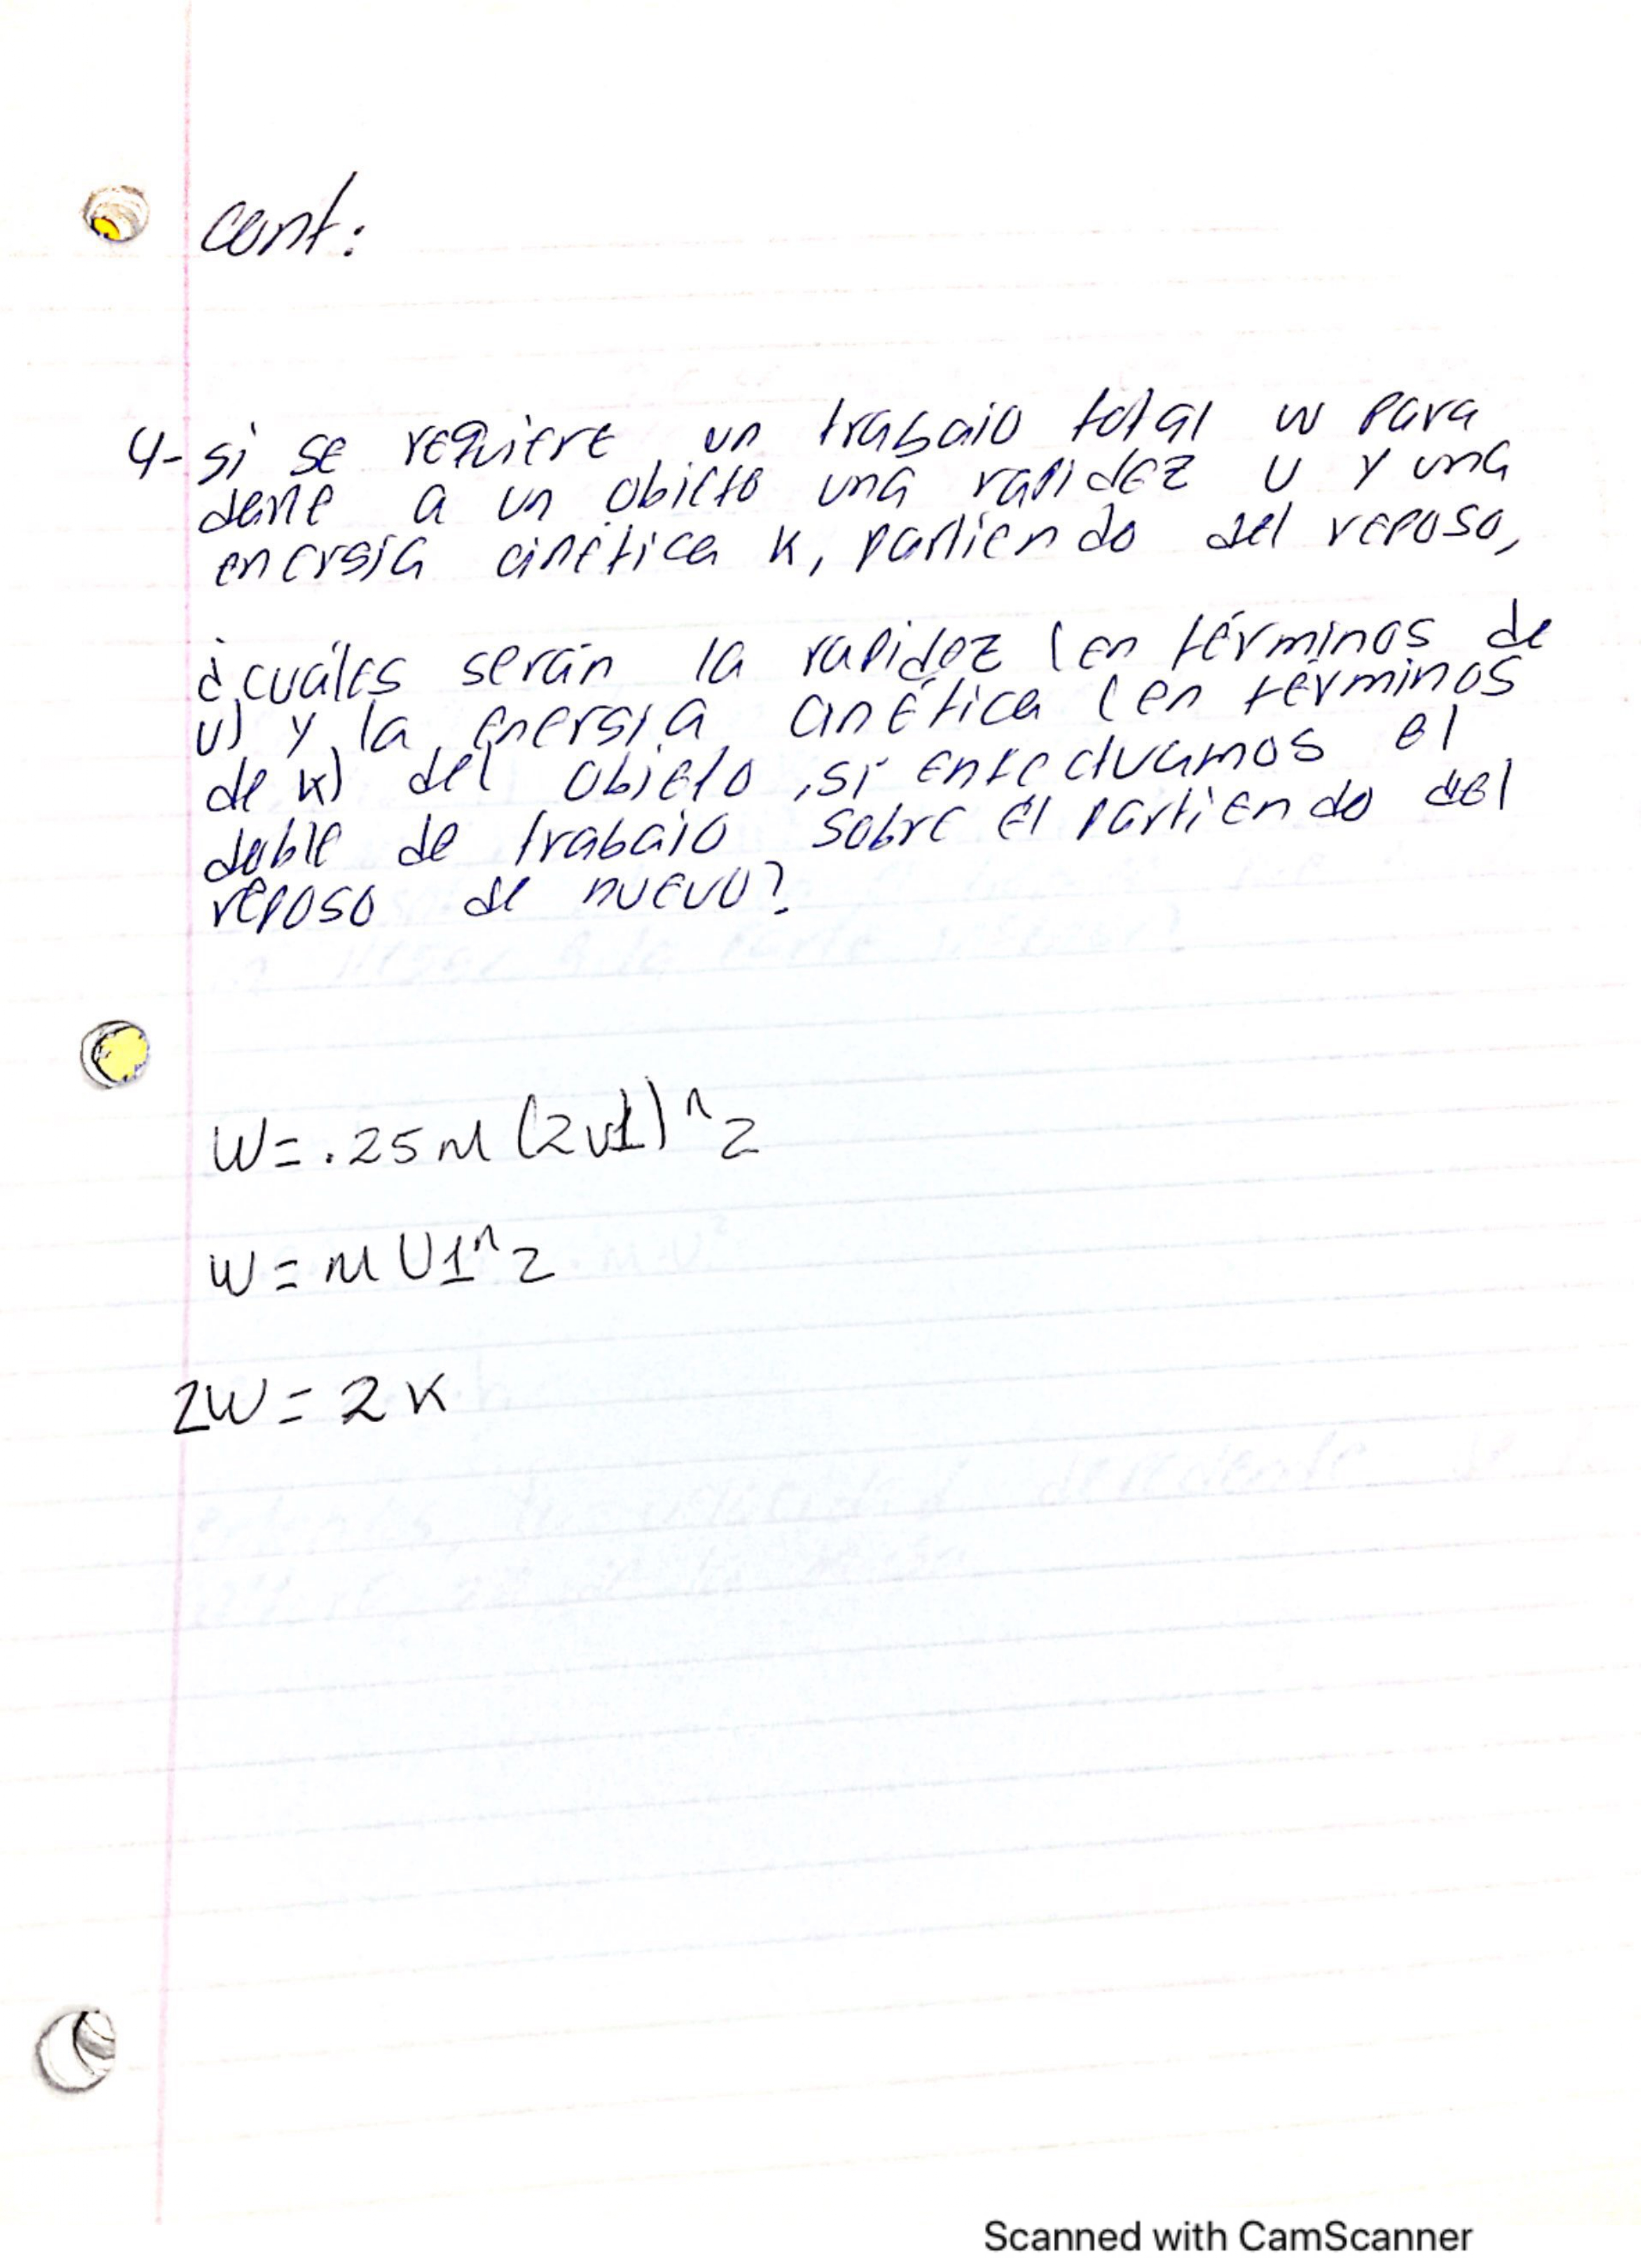 cont:
4- si se requiere un trabajo total w para
darle a un objeto una rapidez v y una
energía cinética k, partiendo del reposo,
¿cuáles serán la rapidez (en términos de
v) y la energía cinética (en términos
de k) del objeto, si efectuamos el
doble de trabajo sobre él partiendo del
reposo de nuevo?
W=.25M(2v1)^2
W=MU1^2
2W=2K
Scanned with CamScanner